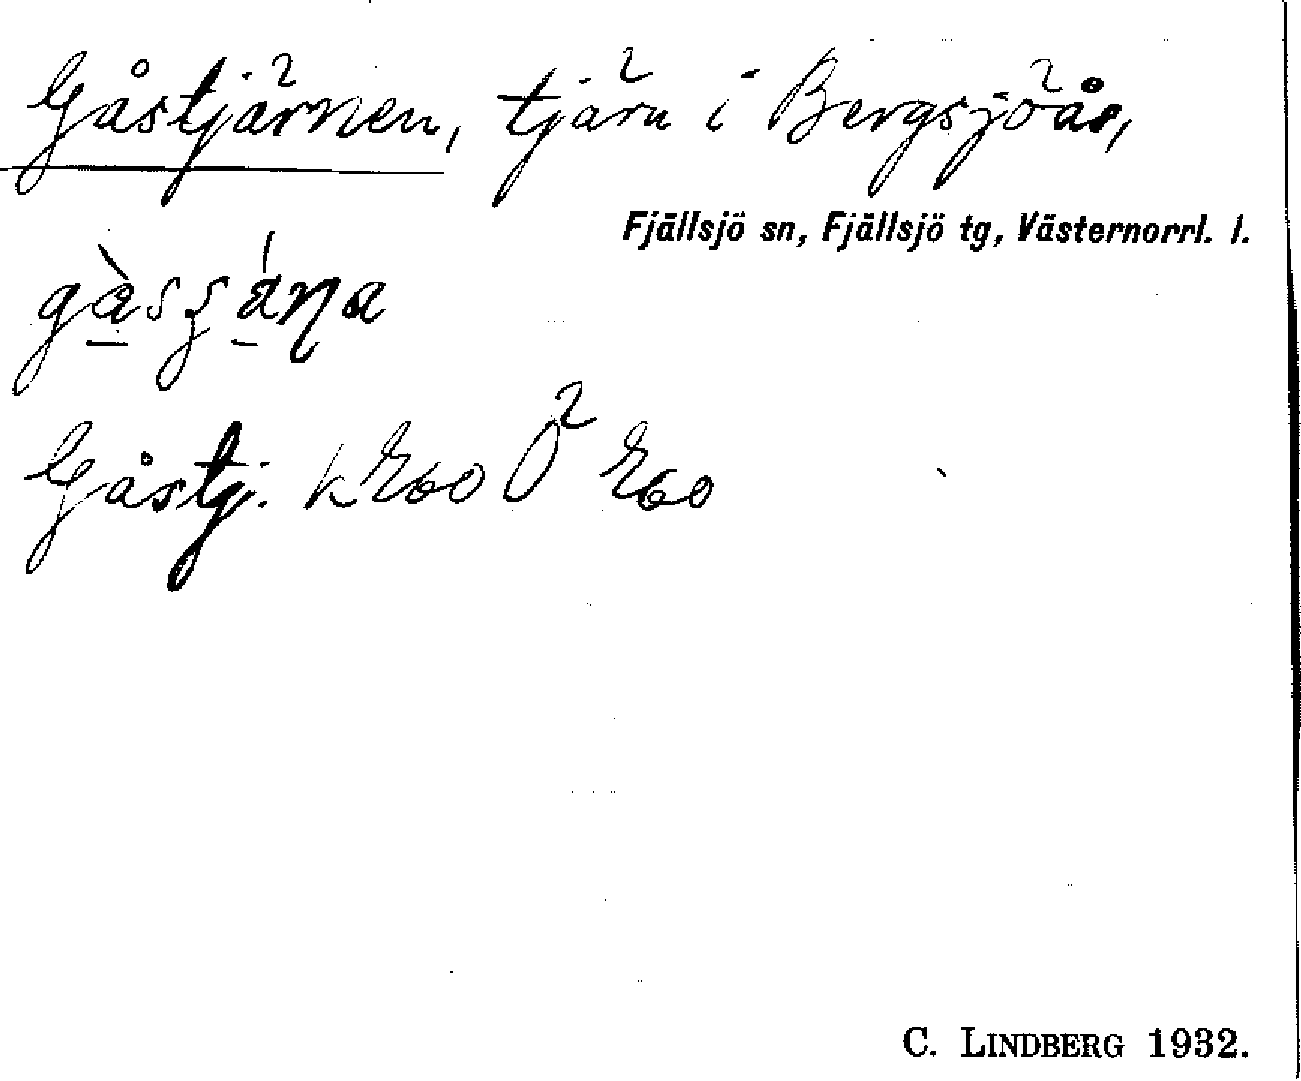 Gåstjärnen, tjärn i Bergsjöås,
Fjällsjö sn, Fjällsjö tg, Västernorrl. l.
Gåstj.
C. LINDBERG 1932.